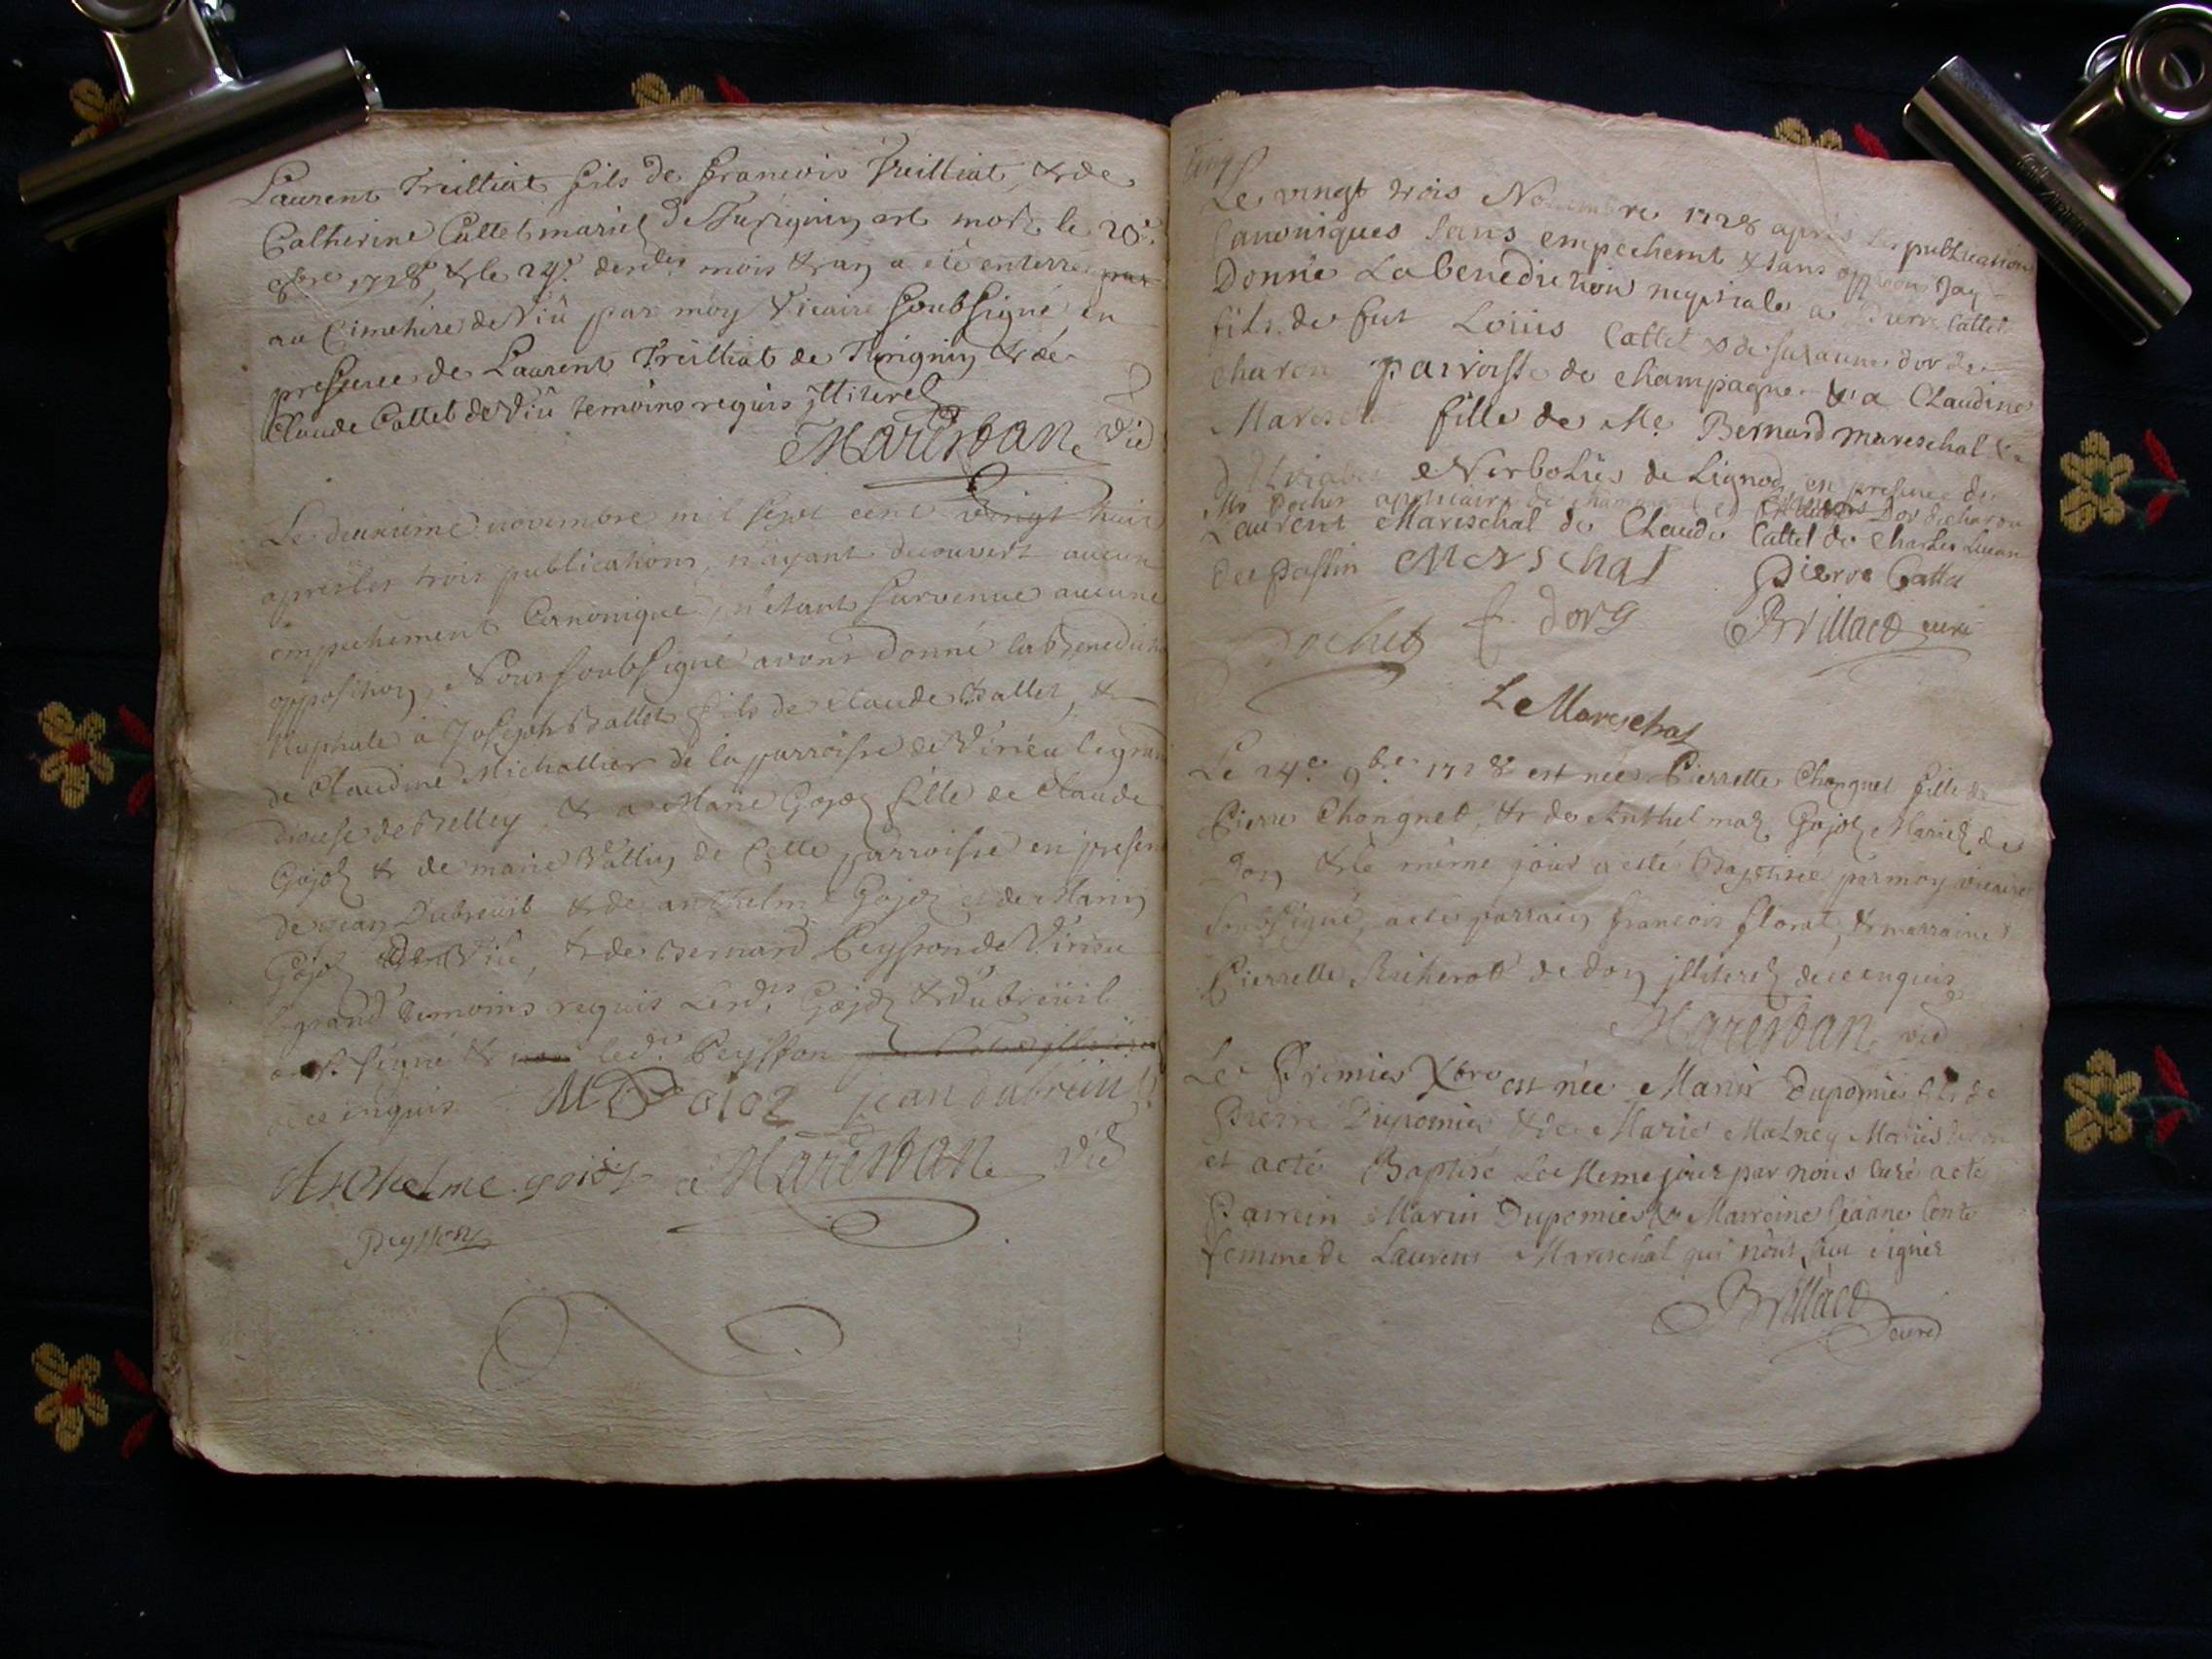 Laurent Treilliat fils de francois Treilliat, & de
Catherine Cattet mariez de Turignin est mort le 23e.
8bre 1728, & le 24e. desdts mois & an a eté enterré
au Cimetière de Viû par moy Vicaire soubsigné en
presence de Laurent Treilliat de Turignin & de
Claude Cattet de Viû temoins requis illiterez
Marestan vic
Le deuxieme novembre mil sept cent vingt huit
apres les trois publications, n'ayant decouvert aucun
empechement Canonique, n'étant survenue aucune
opposition, Nous soubsigné avons donné la Benediction
Nuptiale à Joseph Ballet fils de Claude Ballet, &
de Claudine Michallier de la parroisse de Virieu le grand
diocese de Belley, & a Marie Gojoz fille de Claude
Gojoz & de marie Vallin de Cette parroisse en presence
de Jean Dubreüil & de anthelme Gojoz et de Marin
Gojoz de Viû, & de Bernard Peysson de Virieu
le grand temoins requis Lesdts Gojoz & Dubreüil
ont signé & ledt Peysson
de ce enquis jean dubreüil
Anthelme gojoz Marestan vic
Peysson
Le vingt trois Novembre 1728 après les publications
Canoniques sans empechemt & sans oppon Jay
Donné La benediction nuptiale a Pierre Cattet
fils de fut Loüis Cattet & de suzanne dor de
charon parroisse de champagne & a Claudine
Mareschal fille de Me Bernard mareschal
de Lignod en presence de
Mr Pochet apoticaire de Dor de charon
Laurent Mareschal de Claude Cattet de Charles
de passin Merschal Pierre Cattet
Pochet f. dorg Brillact curé
L Mareschal
Le 24e. 9bre. 1728 est née Pierrette Chongnet fille de
Pierre Chongnet, & de Anthelmaz Gojoz Mariez de
Don & le même jour a esté Baptisée par moy vicaire
soubsigné, a eté parrain francois florat, & marraine
Pierrette Richerot de don illiterez de ce enquis
Marestan vic
Le Premier Xbre est née Marin Dupomier fils de
Pierre Dupomier & de Marie Mariés
et a eté Baptisé Le Meme jour par nous Curé a eté
Parrein Marin Dupomier & Marreine Jeanne
femme de Laurens Mareschal qui n'ont sceu signer
Brillact
curé